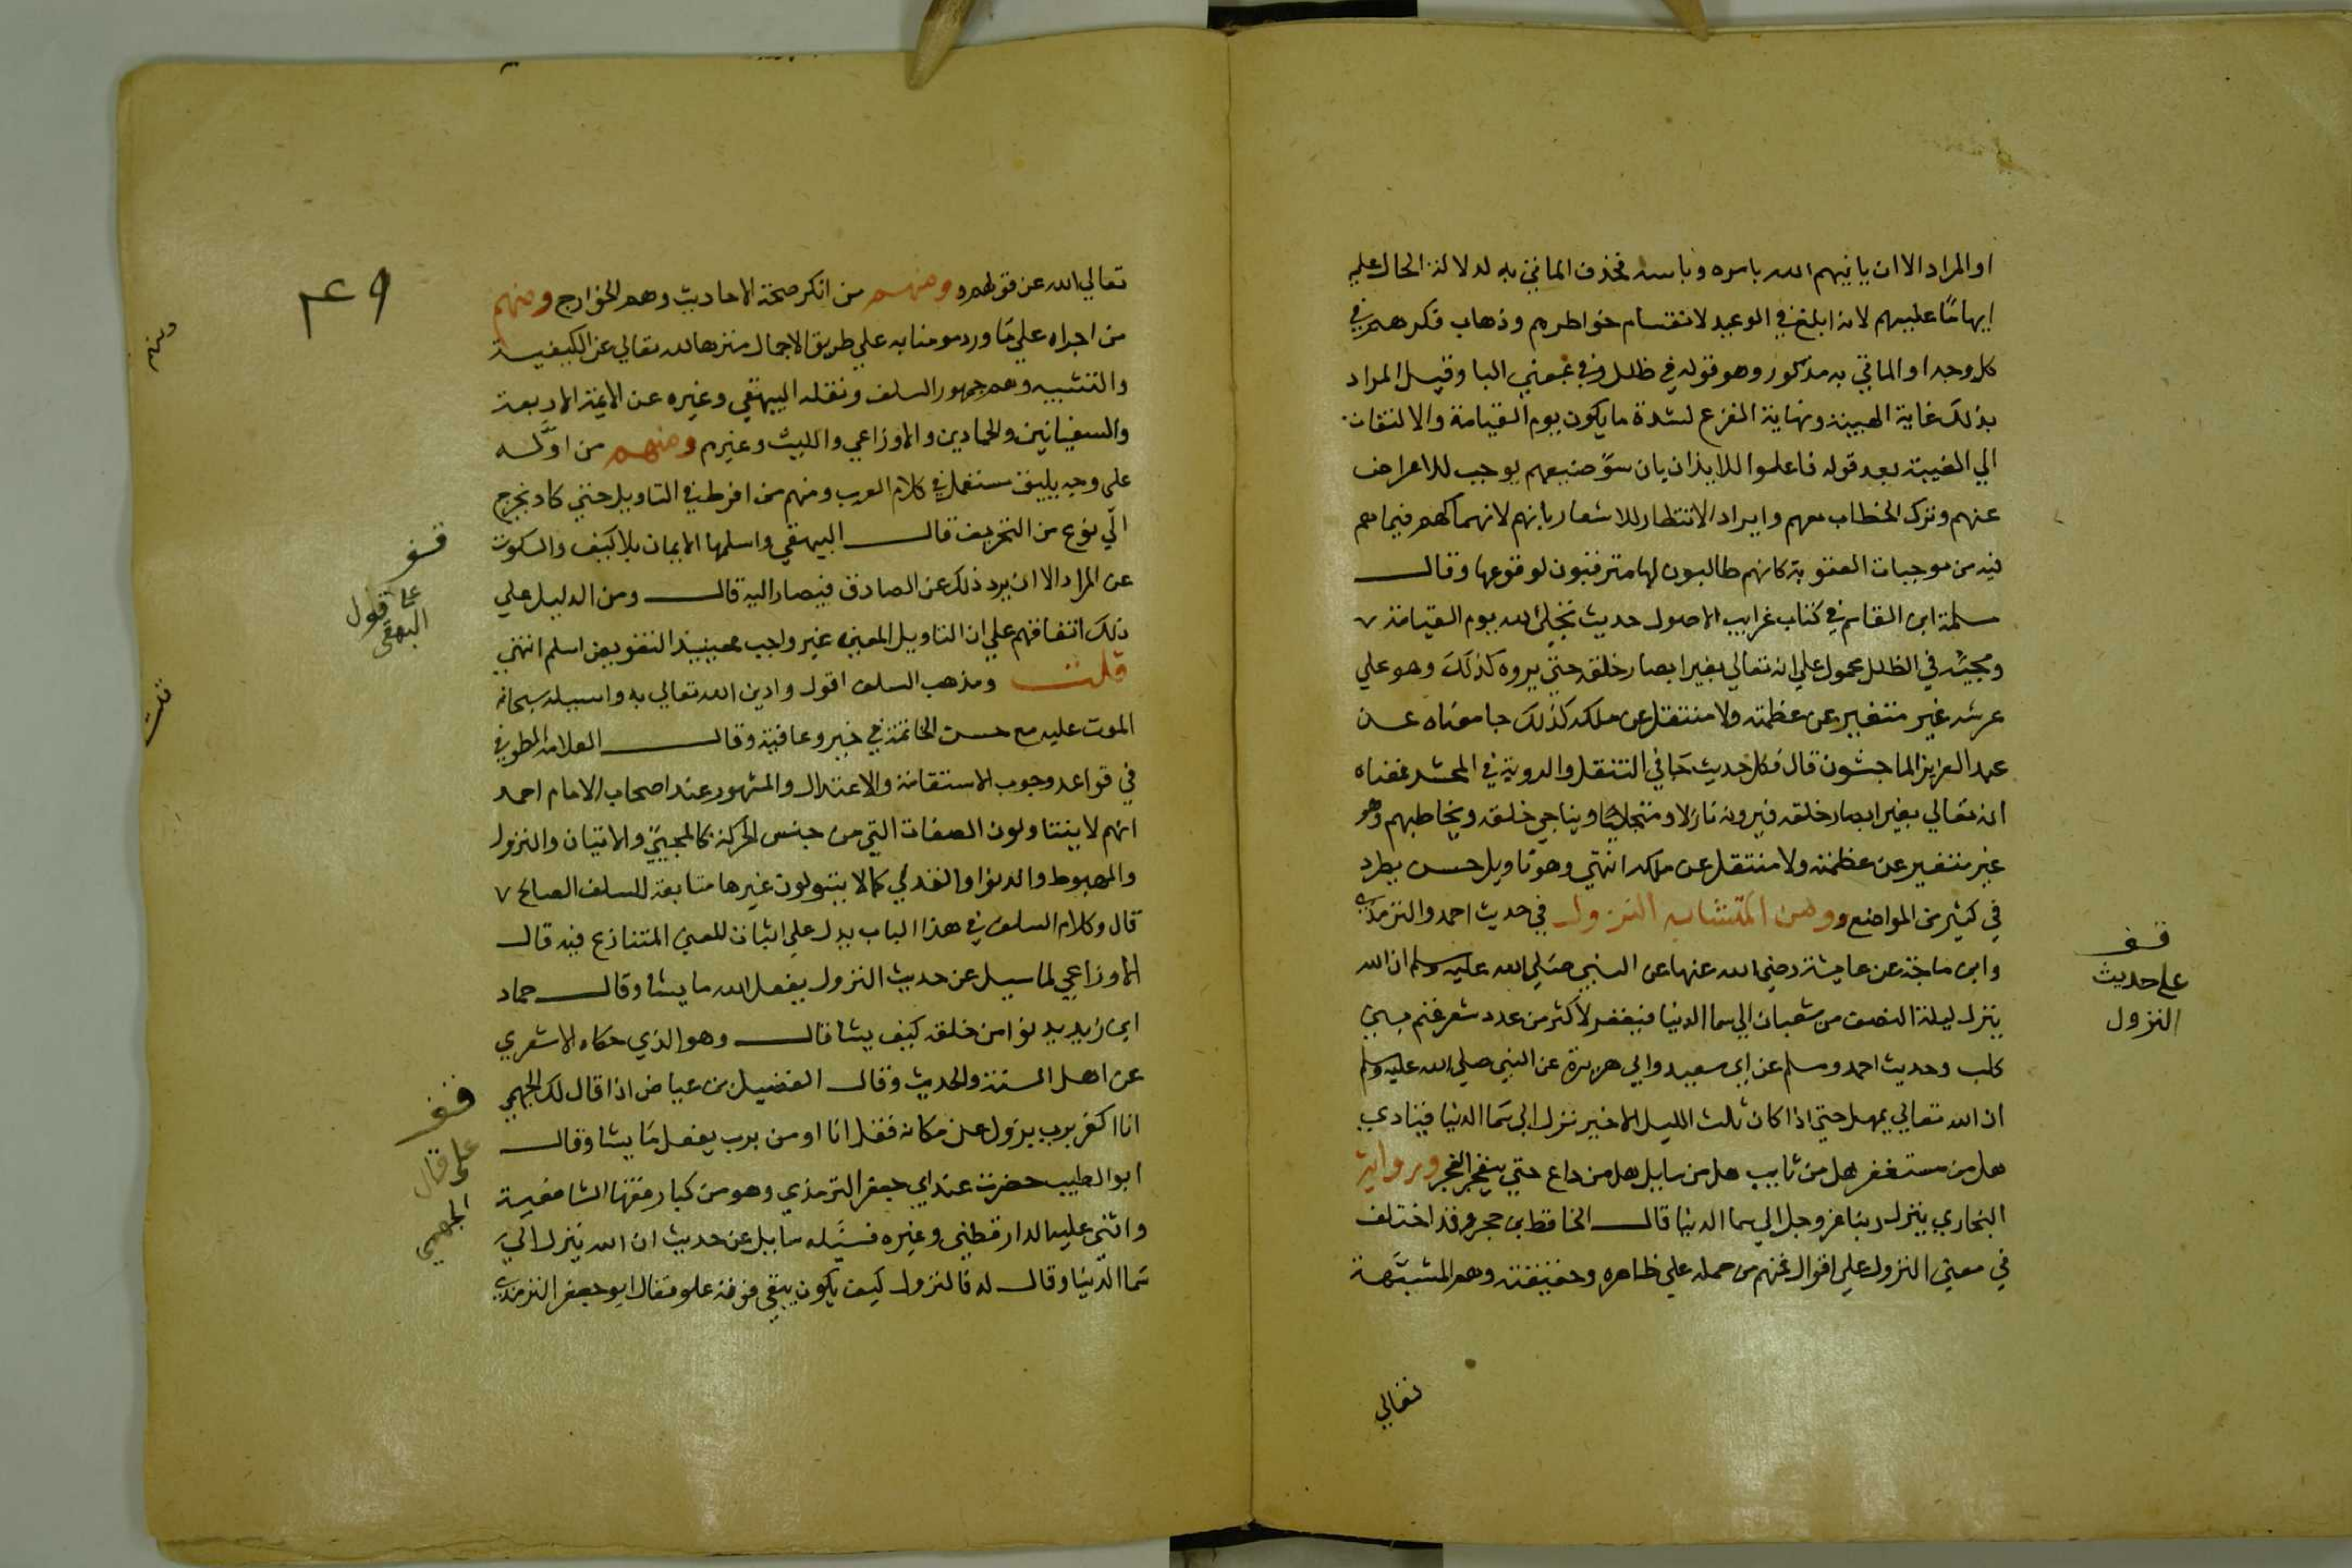 او المراد الا ان ياتيهم الله بامره وباسه فحذف الماتي به لدلالة الحال عليه
ايهامًا عليهم لانه ابلغ في الوعيد لانقسام خواطرهم وذهاب فكرهم في
كل وجه او الماتي به مذكور وهو قوله في ظلل وفي بمعني البا وقيل المراد
بذلك غاية الهيبة ونهاية الفزع لشدة ما يكون يوم القيامة والالتفات
الي الغيبة بعد قوله فاعلموا للايذان بان سوء صنيعهم يوجب للاعراض
عنهم وترك الخطاب معهم وايراد الانتظار للاشعار بانهم لانهماكهم فيما هم
فيه من موجبات العقوبة كانهم طالبون لها مترقبون لوقوعها وقال
سلمة ابن القاسم في كتاب غرايب الاصول حديث تجلي الله يوم القيامة
ومجيئه في الظلل محمول علي انه تعالي يغير ابصار خلقه حتي يروه كذلك وهو علي
عرشه غير متغير عن عظمته ولا منتقل عن ملكه كذلك جا معناه عن
عبد العزيز الماجشون قال فكل حديث جا في التنقل والروية في المحشر فمعناه
انه تعالي يغير ابصار خلقه فيرونه نازلا ومتجليًا ويناجي خلقه ويخاطبهم وهو
غير متغير عن عظمته ولا منتقل عن ملكه انتهي وهو تاويل حسن يطرد
في كثير من المواضع ومن المتشابه النزول في حديث احمد والترمذي
وابن ماجة عن عايشة رضي الله عنها عن النبي صلي الله عليه وسلم ان الله
ينزل ليلة النصف من شعبان الي سما الدنيا فيغفر لاكثر من عدد شعر غنم بني
كلب وحديث احمد ومسلم عن ابي سعيد وابي هريرة عن النبي صلي الله عليه وسلم
ان الله تعالي يمهل حتي اذا كان ثلث الليل الاخير نزل الي سما الدنيا فينادي
هل من مستغفر هل من تايب هل من سايل هل من داع حتي ينفجر الفجر ورواية
البخاري ينزل ربنا عز وجل الي سما الدنيا قال الحافظ بن حجر وقد اختلف
في معني النزول علي اقوال فمنهم من حمله علي ظاهره وحقيقته وهم المشبهة
تعالي
قف
علي حديث
النزول
٤٩
تعالي الله عن قولهم ومنهم من انكر صحة الاحاديث وهم الخوارج ومنهم
من اجراه علي ما ورد مومنا به علي طريق الاجمال منزها لله تعالي عن الكيفية
والتشبيه وهم جمهور السلف ونقله البيهقي وغيره عن الايمة الاربعة
والسفيانين والحمادين والاوزاعي والليث وغيرهم ومنهم من اوَّله
علي وجه يليق مستعمل في كلام العرب ومنهم من افرط في التاويل حتي كاد يخرج
الي نوع من التحريف قال البيهقي واسلمها الايمان بلا كيف والسكوت
عن المراد الا ان يرد ذلك عن الصادق فيصار اليه قال ومن الدليل علي
ذلك اتفاقهم علي ان التاويل المعين غير واجب فحينيذ التفويض اسلم انتهي
قلت ومذهب السلف اقول وادين الله تعالي به واسيله سبحانه
الموت عليه مع حسن الخاتمة في خير وعافية وقال العلامة الطوفي
في قواعد وجوب الاستقامة والاعتدال والمشهور عند اصحاب الامام احمد
انهم لا يتناولون الصفات التي من جنس الحركة كالمجيئ والاتيان والنزول
والهبوط والدنوا والتدلي كما لا يتولون غيرها متابعة للسلف الصالح
قال وكلام السلف في هذا الباب يدل علي اثبات المعني المتنازع فيه قال
الاوزاعي لما سيل عن حديث النزول يفعل الله ما يشا وقال حماد
ابن زيد يدنوا من خلقه كيف يشا قال وهو الذي حكاه الاشعري
عن اهل السنة والحديث وقال الفضيل بن عياض اذا قال لك الجهمي
انا اكفر برب يزول عن مكانه فقل انا اومن برب يفعل ما يشا وقال
ابو الطيب حضرت عند ابي جعفر الترمذي وهو من كبار فقها الشافعية
واثني عليه الدارقطني وغيره فسيله سايل عن حديث ان الله ينزل الي
سما الدنيا وقال له فالنزول كيف يكون يبقي فوقه علو فقال ابو جعفر الترمذي
قف
علي قول
البيهقي
قف
علي قال
الجهمي